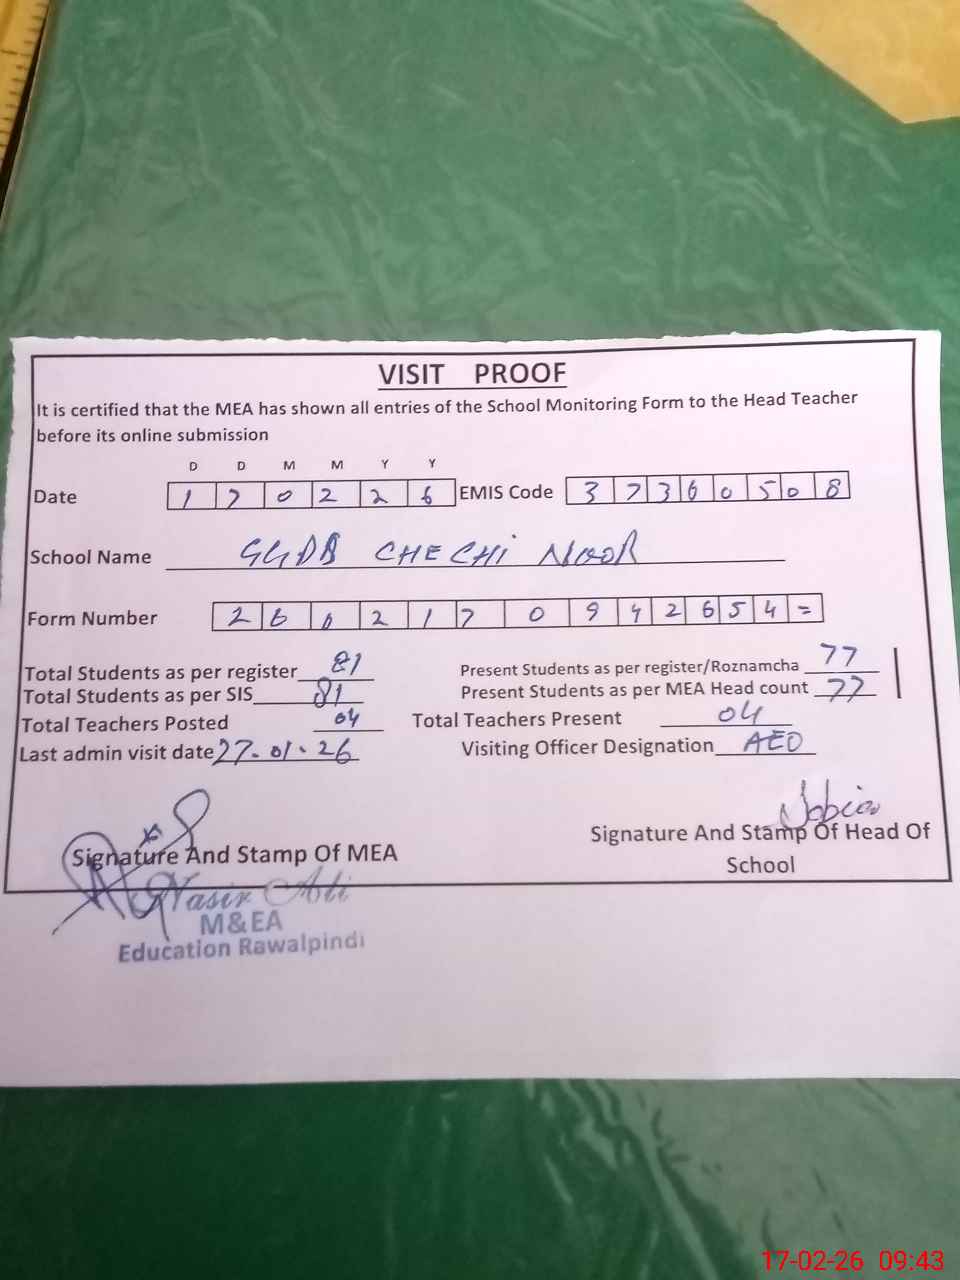 VISIT PROOF
It is certified that the MEA has shown all entries of the School Monitoring Form to the Head Teacher
before its online submission
D D M M Y Y
Date 1 7 0 2 2 6 EMIS Code 3 7 3 6 0 5 0 8
School Name CHECHI NOOR
Form Number 2 6 0 2 1 7 0 9 4 2 6 5 4 =
Total Students as per register 81 Present Students as per register/Roznamcha 77
Total Students as per SIS 81 Present Students as per MEA Head count 77
Total Teachers Posted 04 Total Teachers Present 04
Last admin visit date 27-01-26 Visiting Officer Designation AEO
Signature And Stamp Of MEA
Signature And Stamp Of Head Of
School
Nasir Ali
M&EA
Education Rawalpindi
17-02-26 09:43